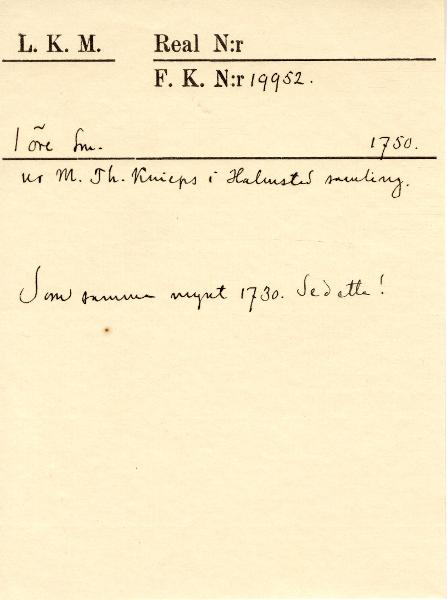 L. K. M. Real N:r
F. K. N:r 19952.
1 öre Sm. 1750.
ur M. Th. Knieps i Halmstad samling.
Som samma mynt 1730. Se detta!